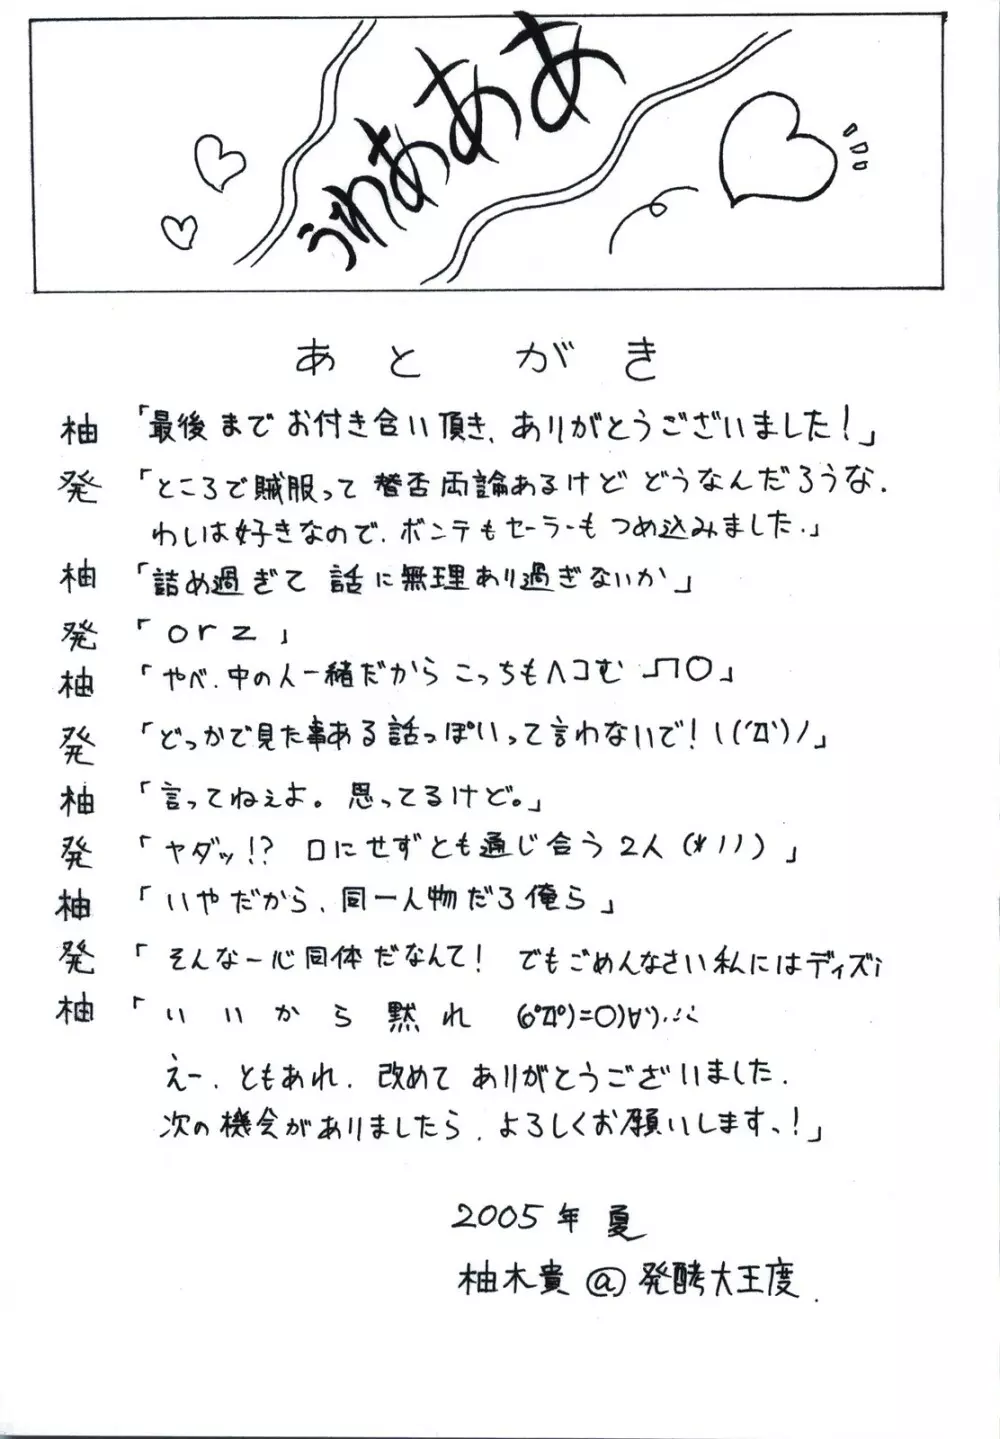 うわああああ
あとがき
柚「最後までお付き合い頂き、ありがとうございました!」
発「ところで賊服って賛否両論あるけどどうなんだろうな.
わしは好きなので、ボンテもセーラーもつめ込みました.」
柚「詰め過ぎて話に無理あり過ぎないか」
発「orz」
柚「やべ、中の人一緒だからこっちもヘコむ_| ̄|○」
発「どっかで見た事ある話っぽいって言わないで!ヽ(´Д`)ノ」
柚「言ってねぇよ。思ってるけど。」
発「ヤダッ!? 口にせずとも通じ合う2人(*ノノ)」
柚「いやだから、同一人物だろ俺ら」
発「そんな一心同体だなんて! でもごめんなさい私にはディズi
柚「いいから黙れ (o゚Д゚)=○)∀`).・∵
えー、ともあれ、改めてありがとうございました.
次の機会がありましたら、よろしくお願いします、!」
2005年 夏
柚木貴@発酵大王度.